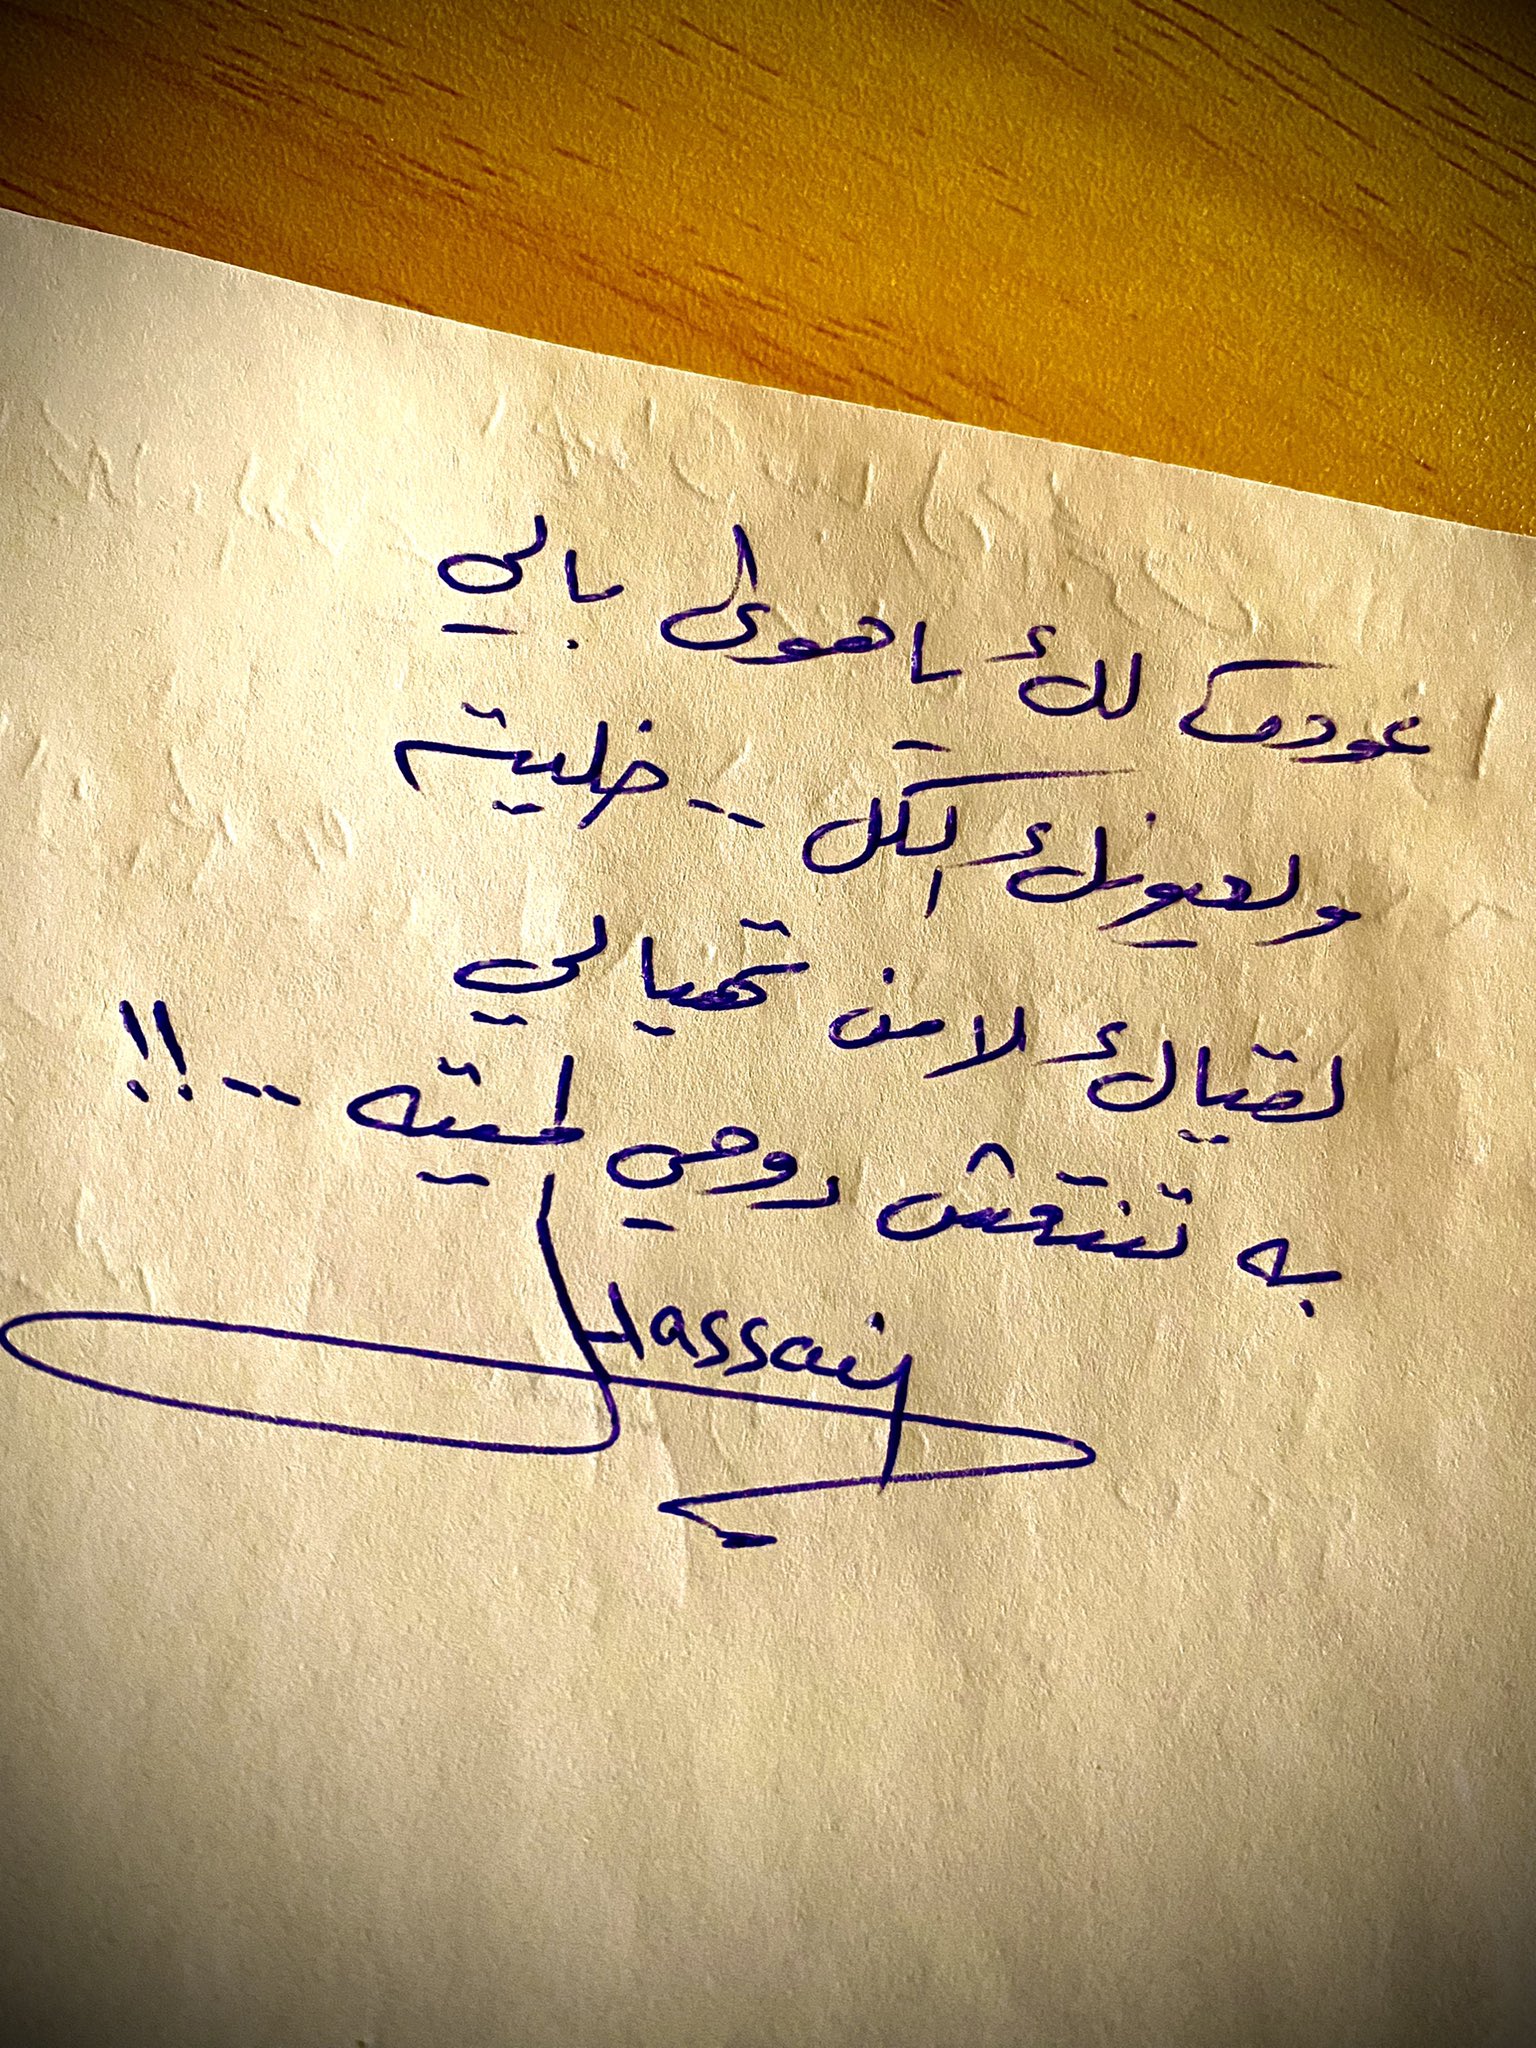 ا غودى لك يا هوى بالي
ولعيونك الكل .. خليته
لقيالك لامن تهيالي
به تنتعش روحي لميته ..!!
Hassain